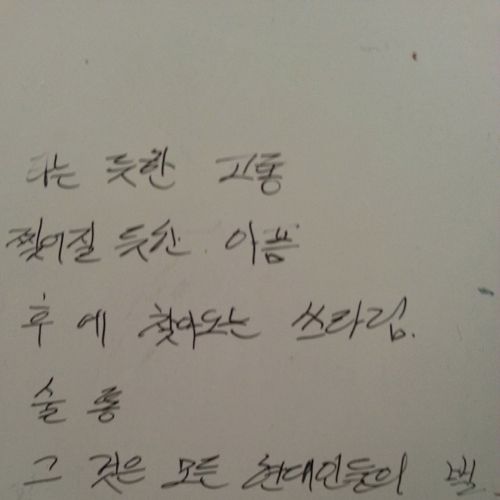 타는 듯한 고통
찢어질 듯한 아픔
후에 찾아오는 쓰라림.
술 통
그 것은 모든 현대인들의